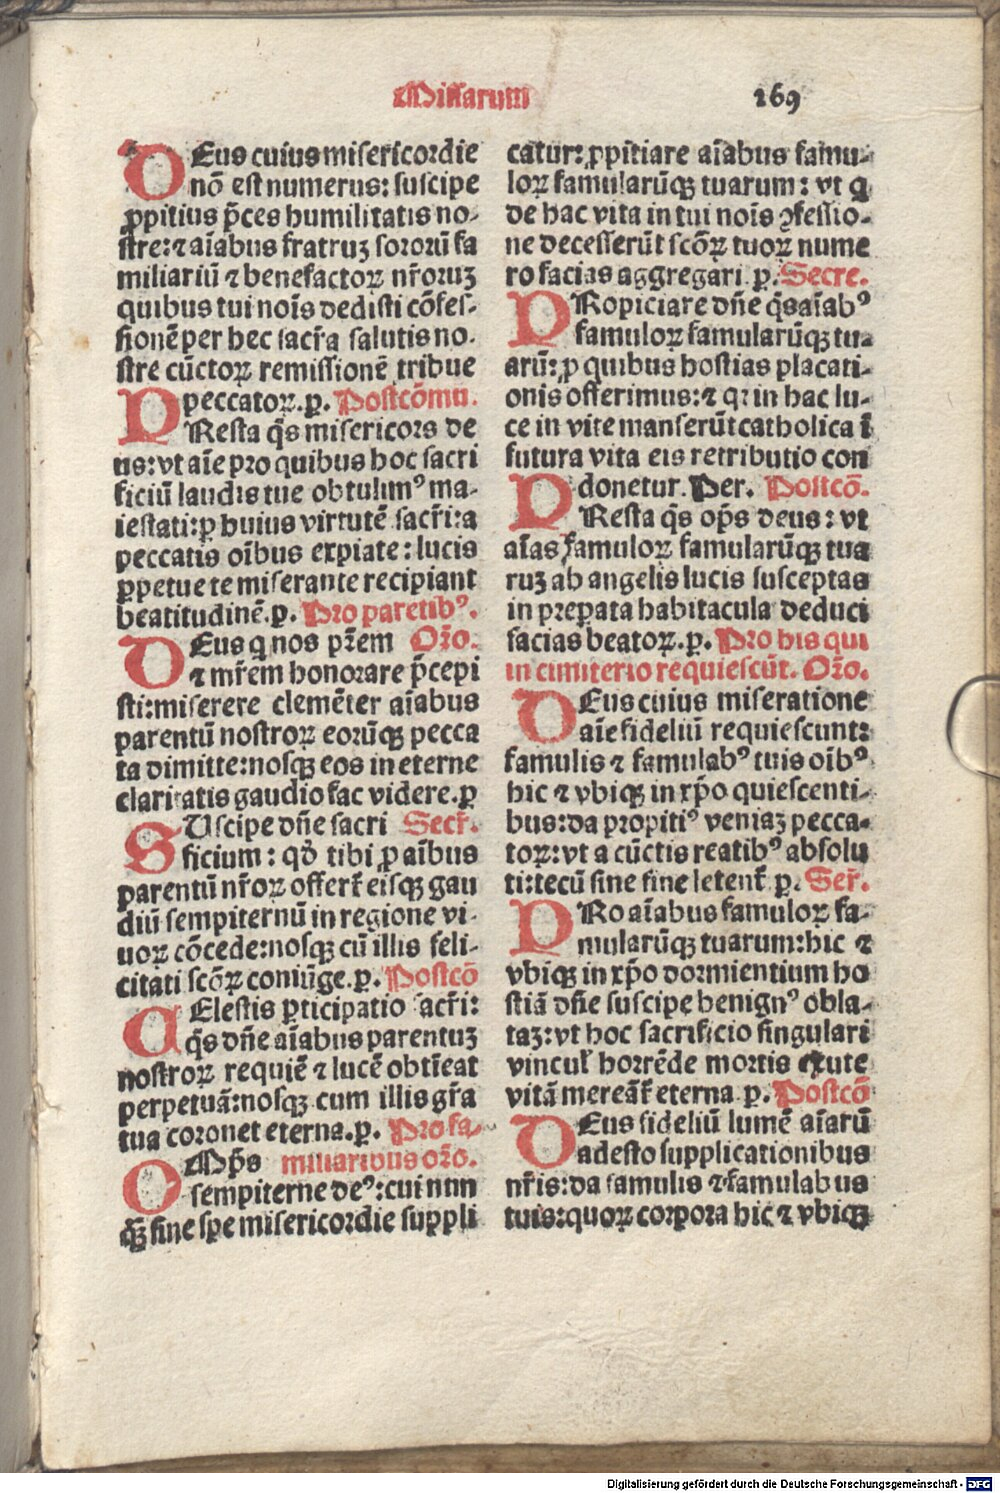 Missarum
169
DEus cuius misericordie
nõ est numerus: suscipe
ꝓpitius p̃ces humilitatis no⸗
stre: ⁊ aĩabus fratruʒ sororũ fa
miliariũ ⁊ benefactoꝝ nr̃oruʒ
quibus tui noĩs dedisti cõfes⸗
sionẽ per hec sacr̃a salutis no⸗
stre cũctoꝝ remissionẽ tribue
peccatoꝝ. ꝑ. Postcõmu.
PResta q̃s misericors de
us: vt aĩe pro quibus hoc sacri
ficiũ laudis tue obtulimꝰ ma⸗
iestati: ꝑ huius virtutẽ sacr̃i: a
peccatis oĩbus expiate: lucis
ꝑpetue te miserante recipiant
beatitudinẽ. ꝑ. Pro parẽtibꝰ.
DEus q nos pr̃em Or̃o.
⁊ mr̃em honorare p̃cepi
sti: miserere clemẽter aĩabus
parentũ nostroꝝ eorũqꝫ pecca
ta dimitte: nosqꝫ eos in eterne
claritatis gaudio fac videre. ꝑ
SUscipe dñe sacri Secr̃.
ficium: qđ tibi ꝓ aĩbus
parentũ nr̃oꝝ offert̃ eisqꝫ gau
diũ sempiternũ in regione vi⸗
uoꝝ cõcede: nosqꝫ cũ illis feli⸗
citati scõꝝ coniũge. ꝑ. Postcõ
CElestis ꝑticipatio acr̃i:
q̃s dñe aĩabus parentuʒ
nostroꝝ requiẽ ⁊ lucẽ obtĩeat
perpetuã: nosqꝫ cum illis gr̃a
tua coronet eterna. ꝑ. Pro fa⸗
OMp̃s miliaribus or̃o.
sempiterne deꝰ: cui nun
qꝫ̃ sine spe misericordie suppli
catur: ꝓpitiare aĩabus famu⸗
loꝝ famularũqꝫ tuarum: vt q
de hac vita in tui noĩs ꝯfessio⸗
ne decesserũt scõꝝ tuoꝝ nume
ro facias aggregari. ꝑ. Secre.
PRopiciare dñe q̃s aĩabꝰ
famuloꝝ famularũqꝫ tu⸗
arũ: ꝓ quibus hostias placati⸗
onis offerimus: ⁊ qꝛ in hac lu⸗
ce in vite manserũt catholica ĩ
futura vita eis retributio con
donetur. Per. Postcõ.
PResta q̃s op̃s deus: vt
aĩas famuloꝝ famularũqꝫ tua
ruʒ ab angelis lucis susceptas
in preparata habitacula deduci
facias beatoꝝ. ꝑ. Pro his qui
in cimiterio requiescũt. Or̃o.
DEus cuius miseratione
aĩe fideliũ requiescunt:
famulis ⁊ famulabꝰ tuis oĩbꝰ
hic ⁊ vbiqꝫ in xp̃o quiescenti⸗
bus: da propitiꝰ veniaʒ pecca⸗
toꝝ: vt a cũctis reatibꝰ absolu
ti: tecũ sine fine letent̃ ꝑ. Ser̃.
PRo aĩabus famuloꝝ fa⸗
mularũqꝫ tuarum: hic ⁊
vbiqꝫ in xp̃o dormientium ho
stiã dñe suscipe benignꝰ obla⸗
taʒ: vt hoc sacrificio singulari
vincul̃ horrẽde mortis exute
vitã mereãt̃ eterna. ꝑ. Postcõ
DEus fideliũ lumẽ aĩarũ
adesto supplicationibus
nr̃is: da famulis ⁊ famulabus
tuis: quoꝝ corpora hic ⁊ vbiqꝫ
Digitalisierung gefördert durch die Deutsche Forschungsgemeinschaft - DFG